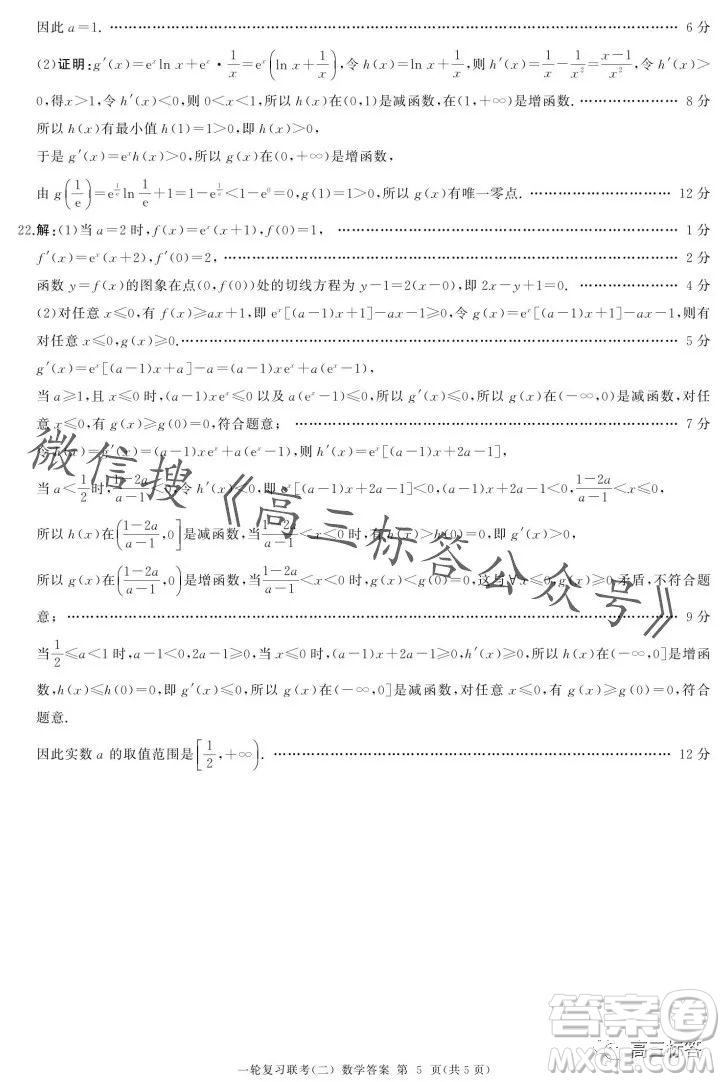 因此 a=1. …… 6 分
(2)证明:g′(x)=eˣln x+eˣ·1/x=eˣ(ln x+1/x),令 h(x)=ln x+1/x,则 h′(x)=1/x-1/x²=(x-1)/x²,令 h′(x)>
0,得x>1,令 h′(x)<0,则 0<x<1,所以 h(x)在(0,1)是减函数,在(1,+∞)是增函数. …… 8 分
所以 h(x)有最小值 h(1)=1>0,即 h(x)>0,
于是 g′(x)=eˣh(x)>0,所以 g(x)在(0,+∞)是增函数,
由 g(1/e)=e^(1/e)ln 1/e+1=1-e^(1/e)<1-e⁰=0,g(1)=1>0,所以 g(x)有唯一零点. …… 12 分
22.解:(1)当 a=2 时,f(x)=eˣ(x+1),f(0)=1, …… 1 分
f′(x)=eˣ(x+2),f′(0)=2, …… 2 分
函数 y=f(x)的图象在点(0,f(0))处的切线方程为 y-1=2(x-0),即 2x-y+1=0. …… 4 分
(2)对任意 x≤0,有 f(x)≥ax+1,即 eˣ[(a-1)x+1]-ax-1≥0,令 g(x)=eˣ[(a-1)x+1]-ax-1,则有
对任意 x≤0,g(x)≥0. …… 5 分
g′(x)=eˣ[(a-1)x+a]-a=(a-1)xeˣ+a(eˣ-1),
当 a≥1,且 x≤0 时,(a-1)xeˣ≤0 以及 a(eˣ-1)≤0,所以 g′(x)≤0,所以 g(x)在(-∞,0)是减函数,对任
意 x≤0,有 g(x)≥g(0)=0,符合题意; …… 7 分
令 h(x)=g′(x)=(a-1)xeˣ+a(eˣ-1),则 h′(x)=eˣ[(a-1)x+2a-1],
当 a<1/2 时,令 h′(x)<0,即(a-1)x+2a-1<0,(a-1)x<1-2a,(1-2a)/(a-1)<x≤0,
所以 h(x)在((1-2a)/(a-1),0]是减函数,当(1-2a)/(a-1)<x<0 时,有 h(x)>h(0)=0,即 g′(x)>0,
所以 g(x)在((1-2a)/(a-1),0)是增函数,当(1-2a)/(a-1)<x<0 时,g(x)<g(0)=0,这与∀x≤0,g(x)≥0 矛盾,不符合题
意; …… 9 分
当1/2≤a<1 时,a-1<0,2a-1≥0,当 x≤0 时,(a-1)x+2a-1≥0,h′(x)≥0,所以 h(x)在(-∞,0]是增函
数,h(x)≤h(0)=0,即 g′(x)≤0,所以 g(x)在(-∞,0]是减函数,对任意 x≤0,有 g(x)≥g(0)=0,符合
题意.
因此实数 a 的取值范围是[1/2,+∞). …… 12 分
微信搜《高三标答公众号》
一轮复习联考(二) 数学答案 第 5 页(共 5 页)
答案圈
高三标答
MXQE.COM